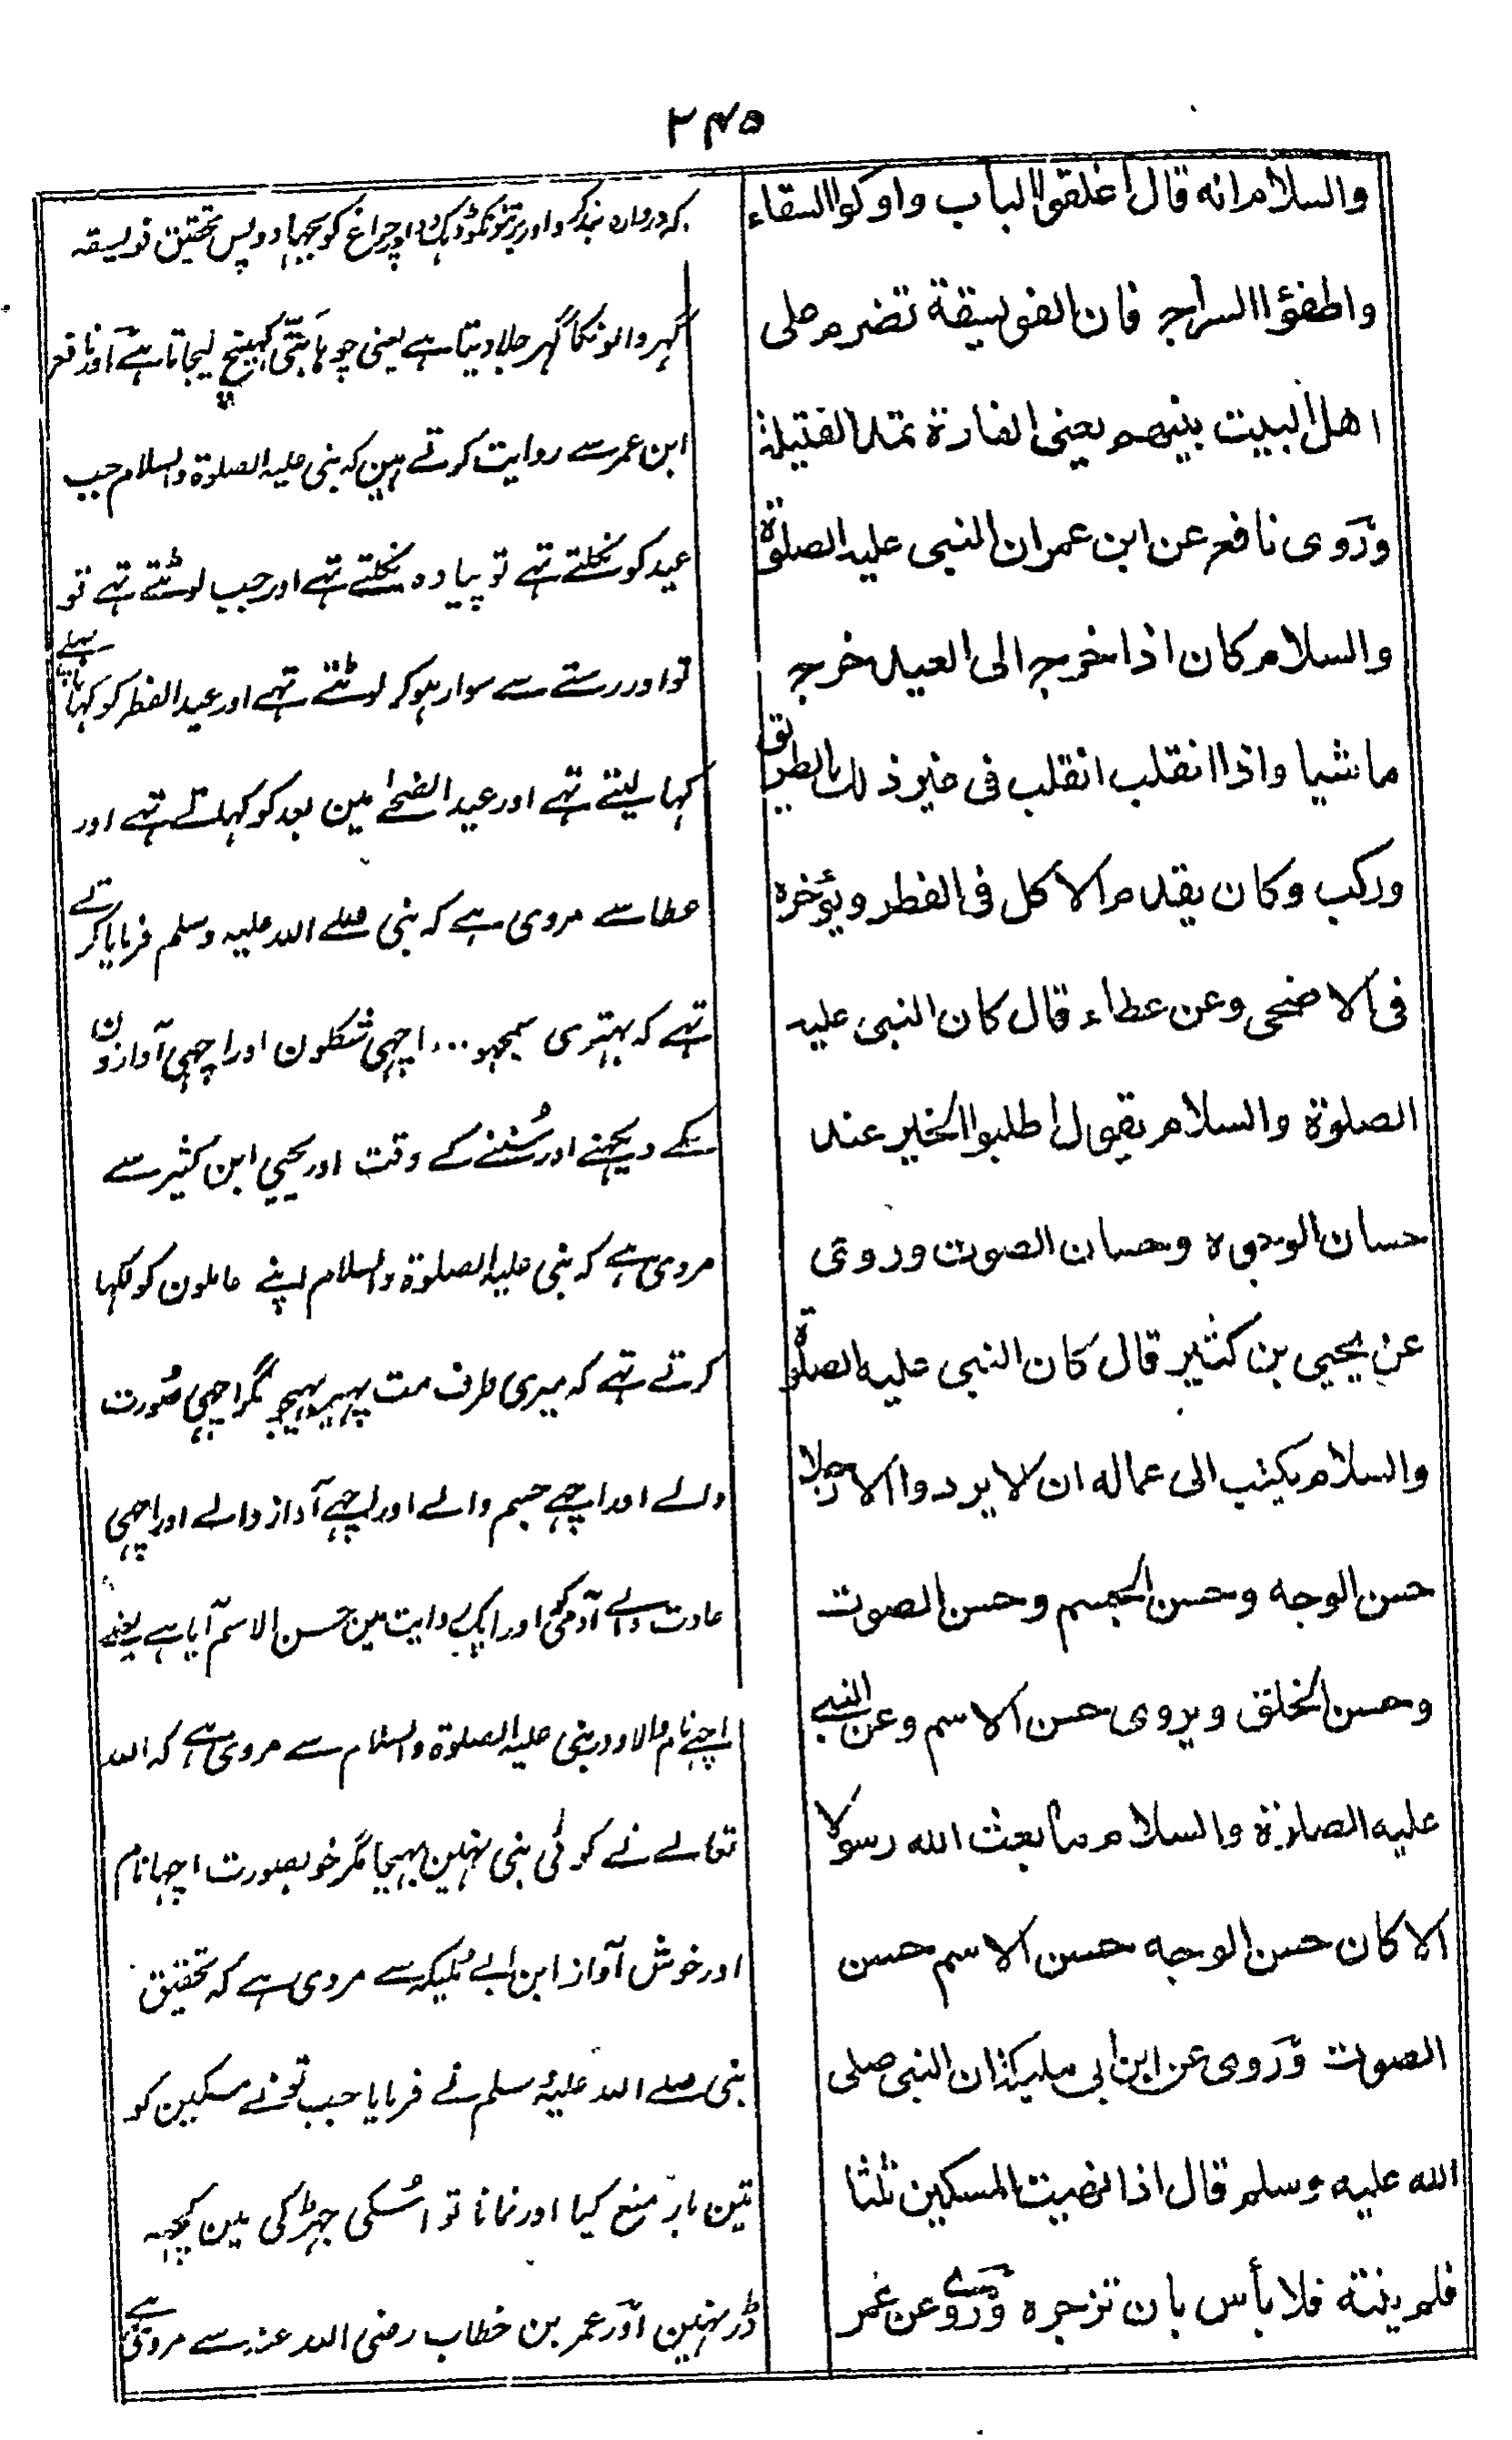 ۲۴۵
والسلام انه قال اغلقوا الباب واوكوا السقاء
واطفؤا السراج فان الفويسقة تضرم على
اهل البيت بيتهم يعنى الفارة تمد الفتيلة
وروى نافع عن ابن عمر ان النبى عليه الصلوة
والسلام كان اذا خرج الى العيد خرج
ماشيا واذا انقلب انقلب فى غير ذلك الطريق
وركب وكان يقدم الاكل فى الفطر ويؤخره
فى الاضحى وعن عطاء قال كان النبى عليه
الصلوة والسلام يقول اطلبوا الخير عند
حسان الوجوه وحسان الصوت وروى
عن يحيى بن كثير قال كان النبى عليه الصلوة
والسلام يكتب الى عماله ان لا يردوا الا رجلا
حسن الوجه وحسن الجسم وحسن الصوت
وحسن الخلق ويروى حسن الاسم وعن النبى
عليه الصلوة والسلام ما بعث الله رسولا
الا كان حسن الوجه حسن الاسم حسن
الصوت وروى عن ابن ابى مليكة ان النبى صلى
الله عليه وسلم قال اذا نهيت المسكين ثلثا
فلم ينته فلا بأس بان تزجره وروى عن عمر
کہ دروازہ بند کرو اور برتنونکو ڈہک دو اور چراغ کو بجہادو پس تحقیق فویسقہ
گہر والونکا گہر جلا دیتا ہے یعنی چوہا بتی کہینچ لیجاتا ہے اور نافع
ابن عمر سے روایت کرتے ہین کہ نبی علیہ الصلوۃ والسلام جب
عید کو نکلتے تہے تو پیادہ نکلتے تہے اور جب لوٹتے تہے تو
تو اور رستے سے سوار ہوکر لوٹتے تہے اور عید الفطر کو کہانا پہلے
کہا لیتے تہے اور عید الضحے مین بعد کو کہاتے تہے اور
عطا سے مروی ہے کہ نبی صلے اللہ علیہ وسلم فرمایا کرتے
تہے کہ بہتری سمجہو ... اچہی شکلون اور اچہی آوازون
کے دیکہنے اور سُننے کے وقت اور یحیی ابن کثیر سے
مروی ہے کہ نبی علیہ الصلوۃ والسلام اپنے عاملون کو لکہا
کرتے تہے کہ میری طرف مت بہیجو مگر اچہی صُورت
والے اور اچہے جسم والے اور اچہے آواز والے اور اچہی
عادت والے آدمی اور ایک روایت مین حسن الاسم آیا ہے یعنے
اچہے نام والا اور نبی علیہ الصلوۃ والسلام سے مروی ہے کہ اللہ
تعالے نے کوئی نبی نہین بہیجا مگر خوبصورت اچہا نام
اور خوش آواز ابن ابے مُلیکہ سے مروی ہے کہ تحقیق
نبی صلے اللہ علیہ وسلم نے فرمایا جب تو نے مسکین کو
تین بار منع کیا اور نمانا تو اسُکی جہڑکی مین کچہہ
ڈر نہین اور عمر بن خطاب رضی اللہ عنہ سے مروی ہے